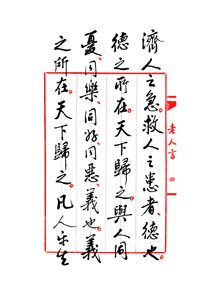 濟人之急。救人之患者、德也。
德之所在。天下歸之。與人同
憂、同樂、同好、同惡、義也。義
之所在。天下歸之。凡人樂生
老人言 四